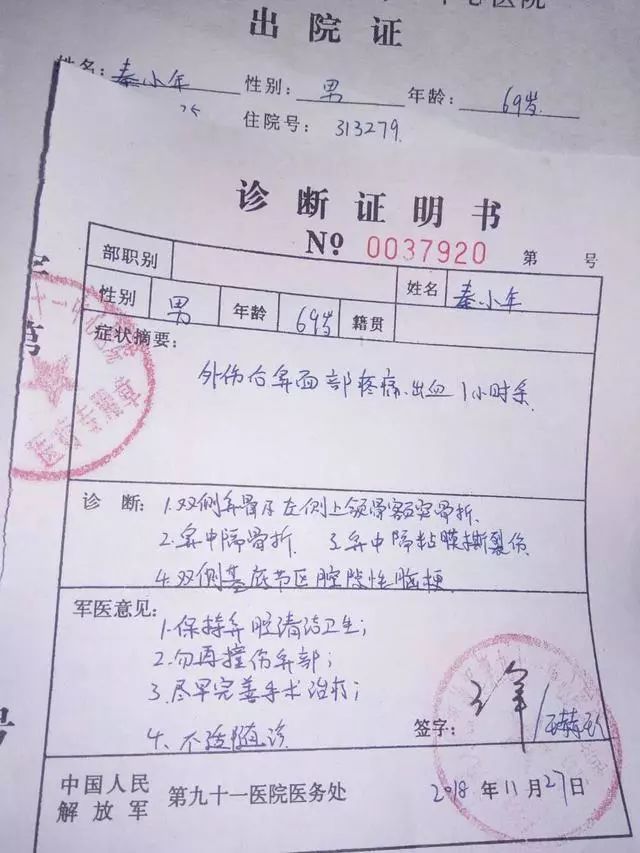 中心医院
出院证
姓名: 秦小年 性别: 男 年龄: 69岁
住院号: 313279
诊断证明书
№ 0037920 第 号
部职别 姓名 秦小年
性别 男 年龄 69岁 籍贯
症状摘要:
外伤后鼻面部疼痛、出血1小时余
诊 断: 1.双侧鼻骨及左侧上颌骨额突骨折.
2.鼻中隔骨折. 3.鼻中隔粘膜撕裂伤
4.双侧基底节区腔隙性脑梗
军医意见: 1.保持鼻腔清洁卫生;
2.勿再撞伤鼻部;
3.尽早完善手术治疗;
4、不适随诊
签字:
中国人民解放军 第九十一医院医务处 2018年11月27日
医疗专用章
第
号